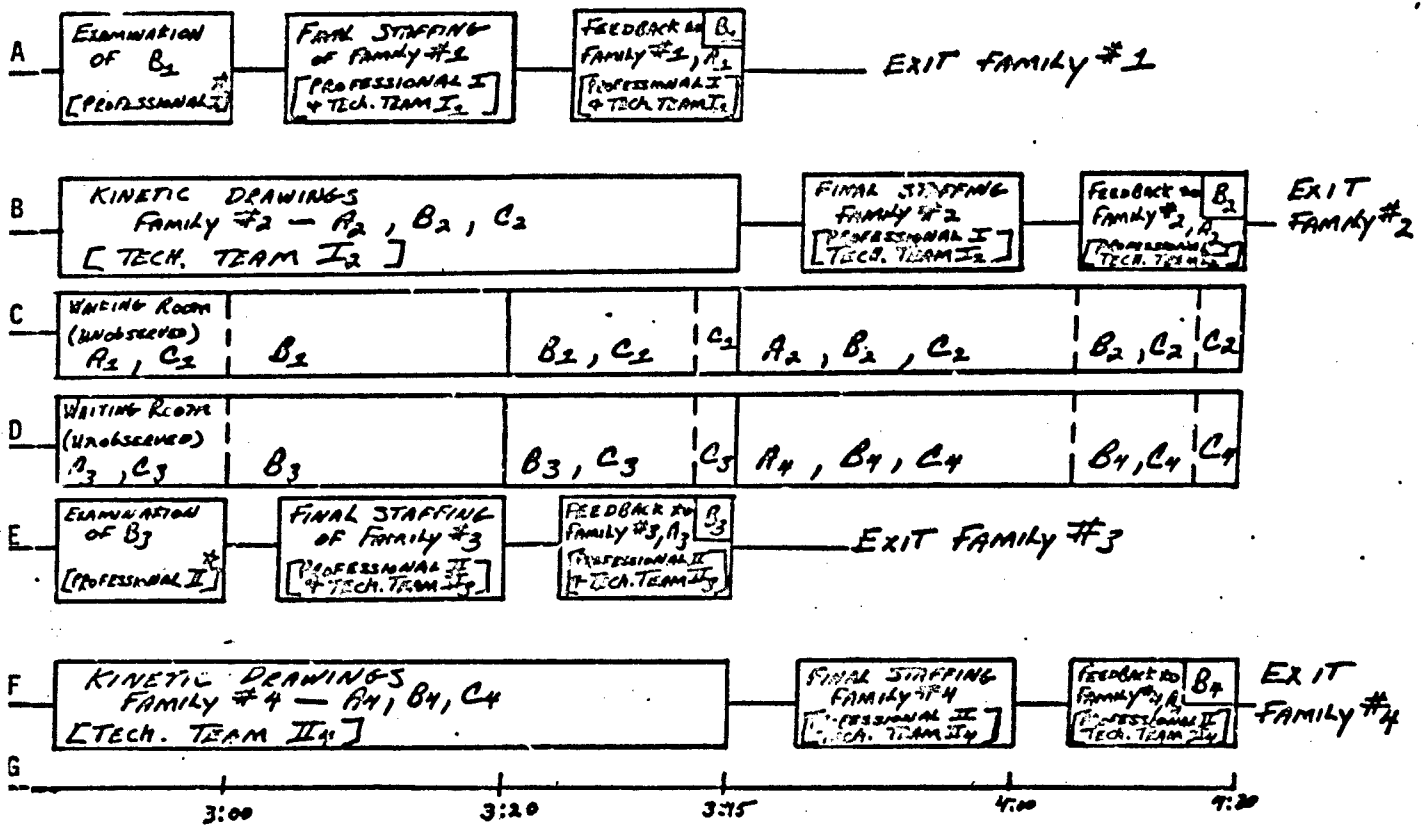 A
EXAMINATION
OF B1
*
[PROFESSIONAL I]
FINAL STAFFING
of FAMILY #1
[PROFESSIONAL I
+ TECH. TEAM I1]
FEEDBACK to
B1
FAMILY #1, A1
[PROFESSIONAL I
+ TECH. TEAM I1]
EXIT FAMILY #1
B
KINETIC DRAWINGS
FAMILY #2 — A2, B2, C2
[TECH. TEAM I2]
FINAL STAFFING
FAMILY #2
[PROFESSIONAL I
TECH. TEAM I2]
FEEDBACK to
B2
FAMILY #2, A2
[PROFESSIONAL I
TECH. TEAM I2]
EXIT
FAMILY #2
C
WAITING ROOM
(UNOBSERVED)
A1, C1
B1
B1, C1
C1
A2, B2, C2
B2, C2
C2
D
WAITING ROOM
(UNOBSERVED)
A3, C3
B3
B3, C3
C3
A4, B4, C4
B4, C4
C4
E
EXAMINATION
OF B3
*
[PROFESSIONAL II]
FINAL STAFFING
of FAMILY #3
[PROFESSIONAL II
+ TECH. TEAM II3]
FEEDBACK to
B3
FAMILY #3, A3
[PROFESSIONAL II
+ TECH. TEAM II3]
EXIT FAMILY #3
F
KINETIC DRAWINGS
FAMILY #4 — A4, B4, C4
[TECH. TEAM II4]
FINAL STAFFING
FAMILY #4
[PROFESSIONAL II
TECH. TEAM II4]
FEEDBACK to
B4
FAMILY #4, A4
[PROFESSIONAL II
TECH. TEAM II4]
EXIT
FAMILY #4
G
3:00
3:20
3:45
4:00
4:20